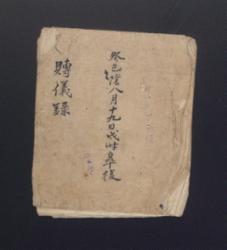 癸巳陰八月十九日戌時後
賻儀錄